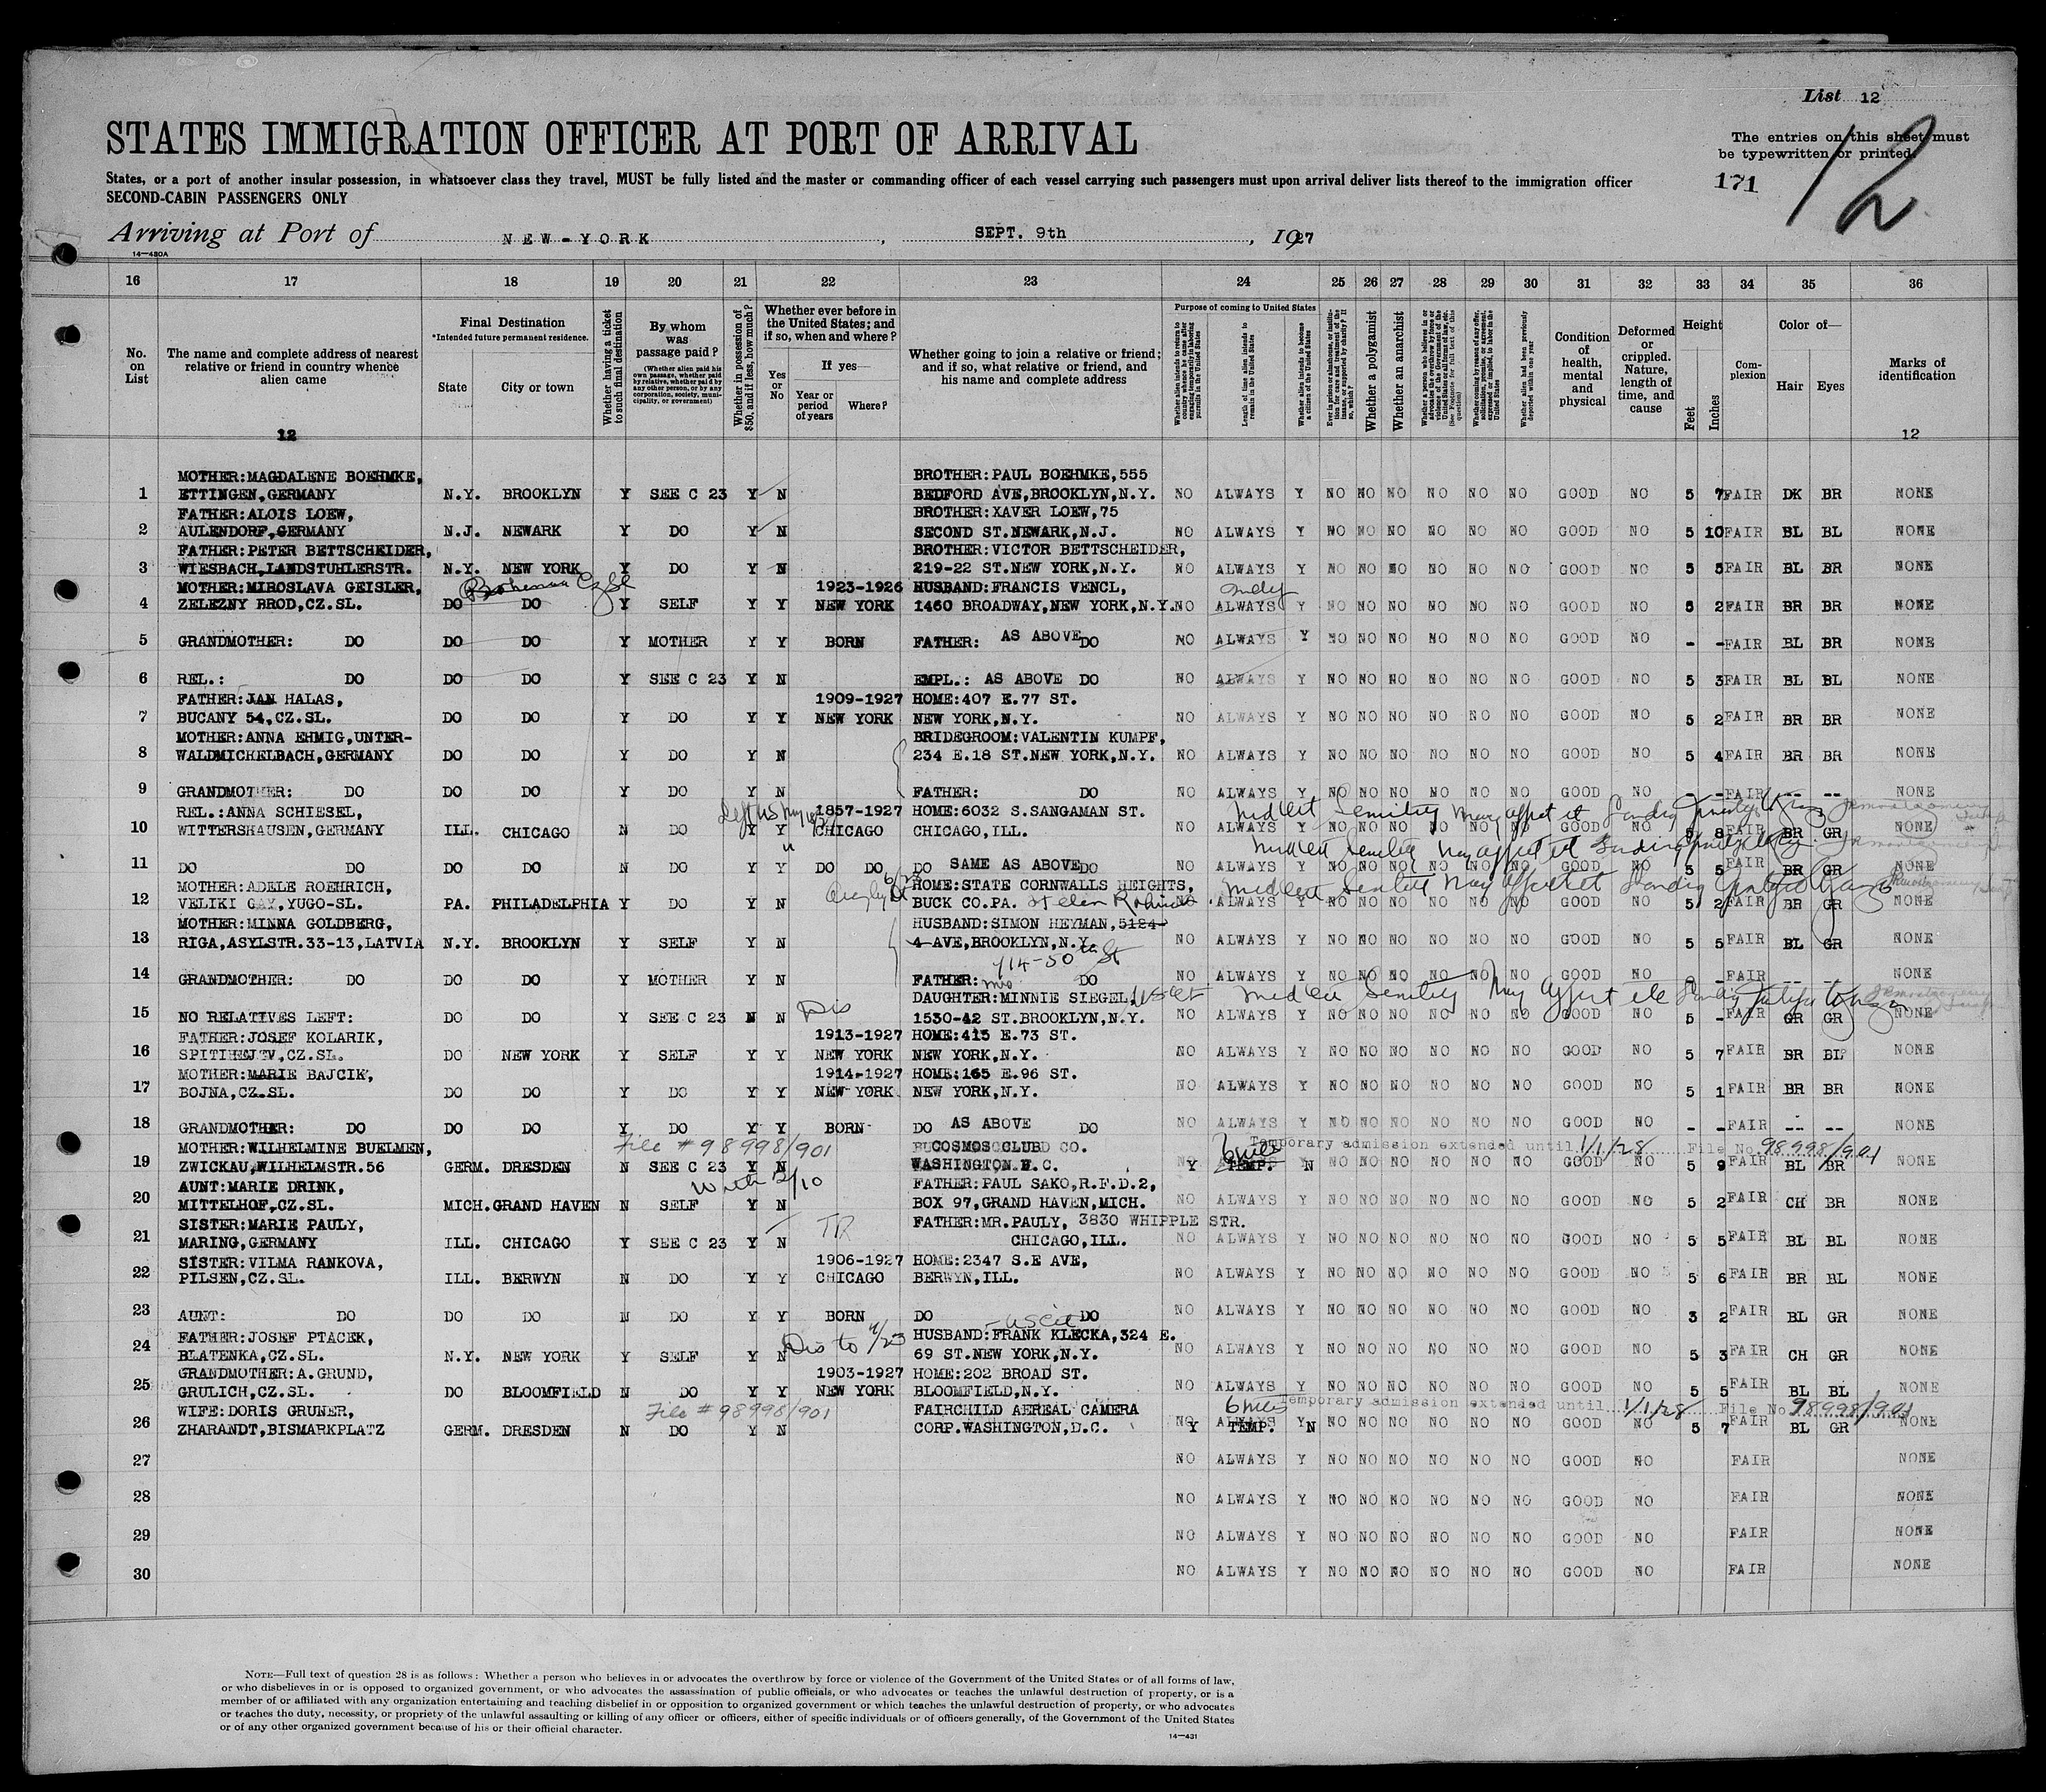 List 12
STATES IMMIGRATION OFFICER AT PORT OF ARRIVAL
The entries on this sheet must
be typewritten or printed.
171
12
States, or a port of another insular possession, in whatsoever class they travel, MUST be fully listed and the master or commanding officer of each vessel carrying such passengers must upon arrival deliver lists thereof to the immigration officer
SECOND-CABIN PASSENGERS ONLY
Arriving at Port of NEW-YORK, SEPT. 9th, 1927
14—430A
16 17 18 19 20 21 22 23 24 25 26 27 28 29 30 31 32 33 34 35 36
No. on List
The name and complete address of nearest relative or friend in country whence alien came
Final Destination
*Intended future permanent residence.
State
City or town
Whether having a ticket to such final destination
By whom was passage paid?
(Whether alien paid his own passage, whether paid by relative, whether paid by any other person, or by any corporation, society, municipality, or government)
Whether in possession of $50, and if less, how much?
Whether ever before in the United States; and if so, when and where?
Yes or No
If yes—
Year or period of years
Where?
Whether going to join a relative or friend; and if so, what relative or friend, and his name and complete address
Purpose of coming to United States
Whether alien intends to return to country whence he came after engaging temporarily in laboring pursuits in the United States
Length of time alien intends to remain in the United States
Whether alien intends to become a citizen of the United States
Ever in prison or almshouse, or institution for care and treatment of the insane, or supported by charity? If so, which?
Whether a polygamist
Whether an anarchist
Whether a person who believes in or advocates the overthrow by force or violence of the Government of the United States or all forms of law, etc. (See Footnote for full text of this question)
Whether coming by reason of any offer, solicitation, promise, or agreement, expressed or implied, to labor in the United States
Whether alien had been previously deported within one year
Condition of health, mental and physical
Deformed or crippled. Nature, length of time, and cause
Height
Feet
Inches
Complexion
Color of—
Hair
Eyes
Marks of identification
12
12
MOTHER:MAGDALENE BOEHMKE, BROTHER:PAUL BOEHMKE,555
1 ETTINGEN,GERMANY N.Y. BROOKLYN Y SEE C 23 Y N BEDFORD AVE,BROOKLYN,N.Y. NO ALWAYS Y NO NO NO NO NO NO GOOD NO 5 7 FAIR DK BR NONE
FATHER:ALOIS LOEW, BROTHER:XAVER LOEW,75
2 AULENDORF,GERMANY N.J. NEWARK Y DO Y N SECOND ST.NEWARK,N.J. NO ALWAYS Y NO NO NO NO NO NO GOOD NO 5 10 FAIR BL BL NONE
FATHER:PETER BETTSCHEIDER, BROTHER:VICTOR BETTSCHEIDER,
3 WIESBACH,LANDSTUHLERSTR. N.Y. NEW YORK Y DO Y N 219-22 ST.NEW YORK,N.Y. NO ALWAYS Y NO NO NO NO NO NO GOOD NO 5 5 FAIR BL BR NONE
MOTHER:MIROSLAVA GEISLER, 1923-1926 HUSBAND:FRANCIS VENCL,
4 ZELEZNY BROD,CZ.SL. DO DO Y SELF Y Y NEW YORK 1460 BROADWAY,NEW YORK,N.Y. NO ALWAYS Y NO NO NO NO NO NO GOOD NO 5 2 FAIR BR BR NONE
5 GRANDMOTHER: DO DO DO Y MOTHER Y Y BORN FATHER: AS ABOVE DO NO ALWAYS Y NO NO NO NO NO NO GOOD NO - - FAIR BL BR NONE
6 REL.: DO DO DO Y SEE C 23 Y N EMPL.: AS ABOVE DO NO ALWAYS Y NO NO NO NO NO NO GOOD NO 5 3 FAIR BL BL NONE
FATHER:JAN HALAS, 1909-1927 HOME:407 E.77 ST.
7 BUCANY 54,CZ.SL. DO DO Y DO Y Y NEW YORK NEW YORK,N.Y. NO ALWAYS Y NO NO NO NO NO NO GOOD NO 5 2 FAIR BR BR NONE
MOTHER:ANNA EHMIG,UNTER- BRIDEGROOM:VALENTIN KUMPF,
8 WALDMICHELBACH,GERMANY DO DO Y DO Y N 234 E.18 ST.NEW YORK,N.Y. NO ALWAYS Y NO NO NO NO NO NO GOOD NO 5 4 FAIR BR BR NONE
9 GRANDMOTHER: DO DO DO Y DO Y N FATHER: DO NO ALWAYS Y NO NO NO NO NO NO GOOD NO - - FAIR -- -- NONE
REL.:ANNA SCHIESEL, 1857-1927 HOME:6032 S.SANGAMAN ST.
10 WITTERSHAUSEN,GERMANY ILL. CHICAGO N DO Y Y CHICAGO CHICAGO,ILL. NO ALWAYS Y NO NO NO NO NO NO GOOD NO 5 8 FAIR BR GR NONE
11 DO DO DO DO N DO Y Y DO DO DO SAME AS ABOVE DO NO ALWAYS Y NO NO NO NO NO NO GOOD NO 5 5 FAIR BR GR NONE
MOTHER:ADELE ROEHRICH, HOME:STATE CORNWALLS HEIGHTS,
12 VELIKI GAY,YUGO-SL. PA. PHILADELPHIA Y DO Y N BUCK CO.PA. NO ALWAYS Y NO NO NO NO NO NO GOOD NO 5 2 FAIR BR GR NONE
MOTHER:MINNA GOLDBERG, HUSBAND:SIMON HEYMAN,5124-
13 RIGA,ASYLSTR.33-13,LATVIA N.Y. BROOKLYN Y SELF Y N 4-AVE,BROOKLYN,N.Y. NO ALWAYS Y NO NO NO NO NO NO GOOD NO 5 5 FAIR BL GR NONE
714-50th St
14 GRANDMOTHER: DO DO DO Y MOTHER Y N FATHER: DO NO ALWAYS Y NO NO NO NO NO NO GOOD NO - - FAIR -- -- NONE
DAUGHTER:MINNIE SIEGEL,
15 NO RELATIVES LEFT: DO DO Y SEE C 23 N N 1530-42 ST.BROOKLYN,N.Y. NO ALWAYS Y NO NO NO NO NO NO GOOD NO 5 - FAIR GR GR NONE
FATHER:JOSEF KOLARIK, 1913-1927 HOME:415 E.73 ST.
16 SPITIHEJEV,CZ.SL. DO NEW YORK Y SELF Y Y NEW YORK NEW YORK,N.Y. NO ALWAYS Y NO NO NO NO NO NO GOOD NO 5 7 FAIR BR BL NONE
MOTHER:MARIE BAJCIK, 1914-1927 HOME:165 E.96 ST.
17 BOJNA,CZ.SL. DO DO Y DO Y Y NEW YORK NEW YORK,N.Y. NO ALWAYS Y NO NO NO NO NO NO GOOD NO 5 1 FAIR BR BR NONE
18 GRANDMOTHER: DO DO DO Y DO Y Y BORN DO AS ABOVE DO NO ALWAYS Y NO NO NO NO NO NO GOOD NO - - FAIR -- -- NONE
File #98998/901 Temporary admission extended until 1/1/28 File No. 98998/901
MOTHER:WILHELMINE BUELMEN, COSMOS CLUB
19 ZWICKAU,WILHELMSTR.56 GERM. DRESDEN N SEE C 23 Y N WASHINGTON D.C. Y TEMP. N NO NO NO NO NO NO GOOD NO 5 9 FAIR BL BR NONE
With 12/10
AUNT:MARIE DRINK, FATHER:PAUL SAKO,R.F.D.2,
20 MITTELHOF,CZ.SL. MICH. GRAND HAVEN N SELF Y N BOX 97,GRAND HAVEN,MICH. NO ALWAYS Y NO NO NO NO NO NO GOOD NO 5 2 FAIR CH BR NONE
SISTER:MARIE PAULY, FATHER:MR.PAULY, 3830 WHIPPLE STR.
21 MARING,GERMANY ILL. CHICAGO Y SEE C 23 Y N CHICAGO,ILL. NO ALWAYS Y NO NO NO NO NO NO GOOD NO 5 5 FAIR BL BL NONE
SISTER:VILMA RANKOVA, 1906-1927 HOME:2347 S.E AVE,
22 PILSEN,CZ.SL. ILL. BERWYN N DO Y Y CHICAGO BERWYN,ILL. NO ALWAYS Y NO NO NO NO NO NO GOOD NO 5 6 FAIR BR BL NONE
23 AUNT: DO DO DO N DO Y Y BORN DO DO NO ALWAYS Y NO NO NO NO NO NO GOOD NO 3 2 FAIR BL GR NONE
FATHER:JOSEF PTACEK, HUSBAND:FRANK KLECKA,324 E.
24 BLATENKA,CZ.SL. N.Y. NEW YORK Y SELF Y N 69 ST.NEW YORK,N.Y. NO ALWAYS Y NO NO NO NO NO NO GOOD NO 5 3 FAIR CH GR NONE
GRANDMOTHER:A.GRUND, 1903-1927 HOME:202 BROAD ST.
25 GRULICH,CZ.SL. DO BLOOMFIELD N DO Y Y NEW YORK BLOOMFIELD,N.Y. NO ALWAYS Y NO NO NO NO NO NO GOOD NO 5 5 FAIR BL BL NONE
File #98998/901 Temporary admission extended until 1/1/28 File No. 98998/901
WIFE:DORIS GRUNER, FAIRCHILD AEREAL CAMERA
26 ZHARANDT,BISMARKPLATZ GERM. DRESDEN N DO Y N CORP.WASHINGTON,D.C. Y TEMP. N NO NO NO NO NO NO GOOD NO 5 7 FAIR BL GR NONE
27 NO ALWAYS Y NO NO NO NO NO NO GOOD NO FAIR NONE
28 NO ALWAYS Y NO NO NO NO NO NO GOOD NO FAIR NONE
29 NO ALWAYS Y NO NO NO NO NO NO GOOD NO FAIR NONE
30 NO ALWAYS Y NO NO NO NO NO NO GOOD NO FAIR NONE
NOTE—Full text of question 28 is as follows: Whether a person who believes in or advocates the overthrow by force or violence of the Government of the United States or of all forms of law,
or who disbelieves in or is opposed to organized government, or who advocates the assassination of public officials, or who advocates or teaches the unlawful destruction of property, or is a
member of or affiliated with any organization entertaining and teaching disbelief in or opposition to organized government or which teaches the unlawful destruction of property, or who advocates
or teaches the duty, necessity, or propriety of the unlawful assaulting or killing of any officer or officers, either of specific individuals or of officers generally, of the Government of the United States
or of any other organized government because of his or their official character.
14—431